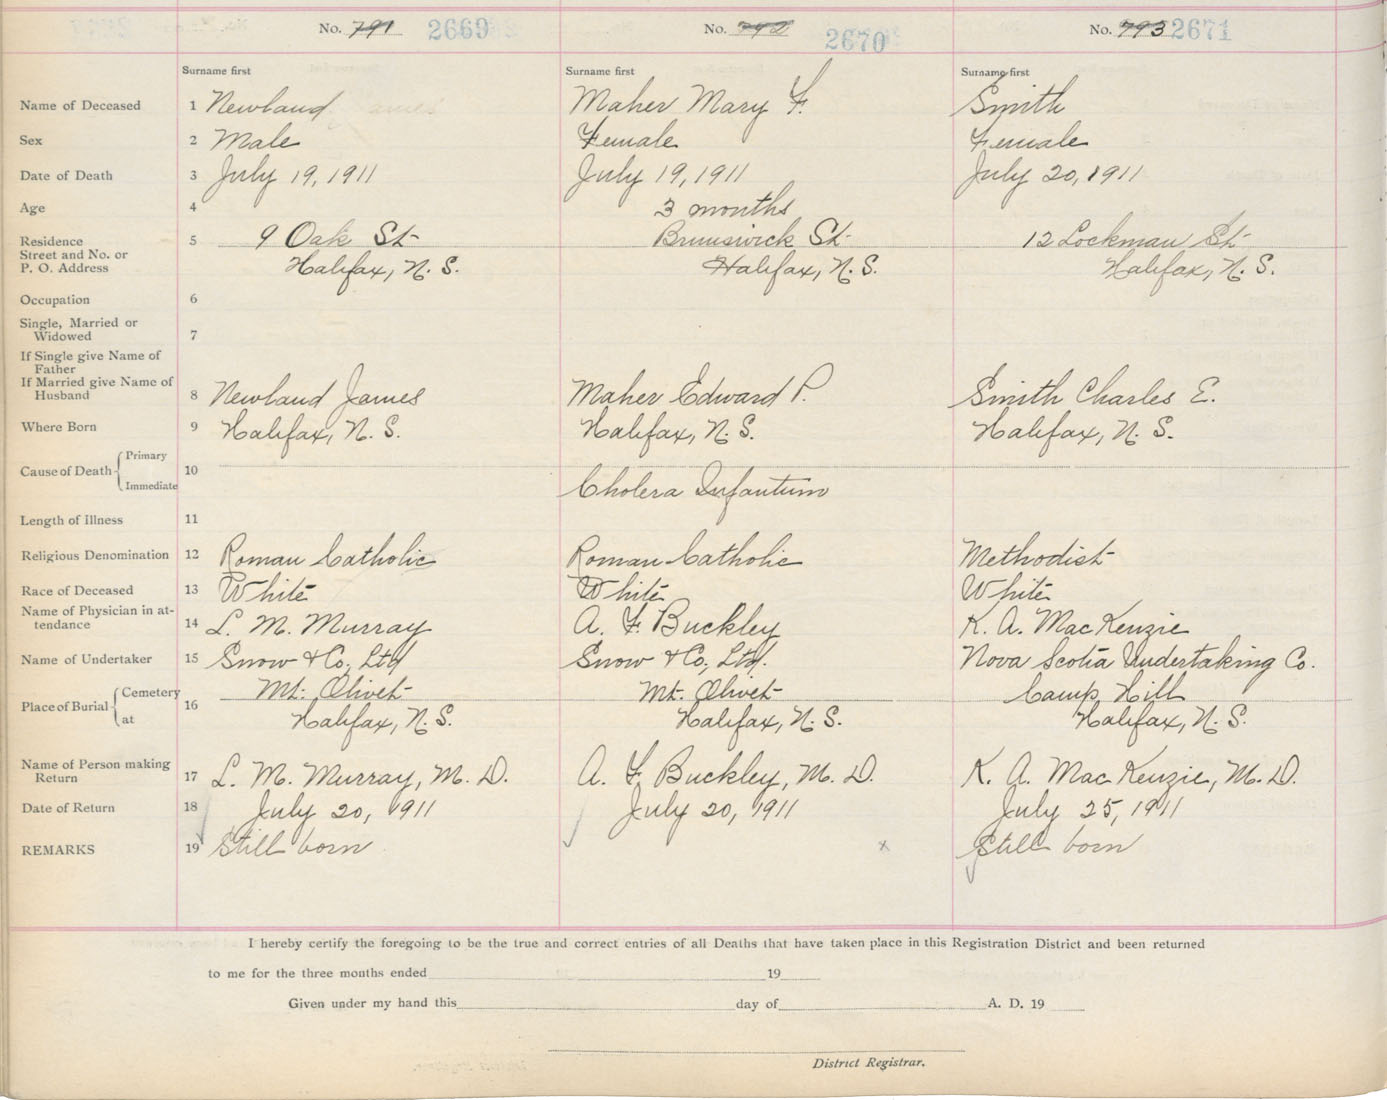 No. 791 2669
No. 792 2670
No. 793 2671
Surname first
Surname first
Surname first
Name of Deceased 1 Newland Maher Mary F. Smith
Sex 2 Male Female Female
Date of Death 3 July 19, 1911 July 19, 1911 July 20, 1911
Age 4 3 months
Residence 5 9 Oak St Brunswick St 12 Lockman St
Street and No. or
P. O. Address Halifax, N. S. Halifax, N. S. Halifax, N. S.
Occupation 6
Single, Married or
Widowed 7
If Single give Name of
Father
If Married give Name of
Husband 8 Newland James Maher Edward P. Smith Charles E.
Where Born 9 Halifax, N. S. Halifax, N. S. Halifax, N. S.
Primary
Cause of Death 10
Immediate Cholera Infantum
Length of Illness 11
Religious Denomination 12 Roman Catholic Roman Catholic Methodist
Race of Deceased 13 White White White
Name of Physician in at-
tendance 14 L. M. Murray A. F. Buckley K. A. MacKenzie
Name of Undertaker 15 Snow & Co, Ltd Snow & Co, Ltd. Nova Scotia Undertaking Co.
Cemetery Mt. Olivet Mt. Olivet Camp Hill
Place of Burial 16
at Halifax, N. S. Halifax, N. S. Halifax, N. S.
Name of Person making
Return 17 L. M. Murray, M. D. A. F. Buckley, M. D. K. A. MacKenzie, M. D.
Date of Return 18 July 20, 1911 July 20, 1911 July 25, 1911
REMARKS 19 Still born x Still born
I hereby certify the foregoing to be the true and correct entries of all Deaths that have taken place in this Registration District and been returned
to me for the three months ended 19
Given under my hand this day of A. D. 19
District Registrar.